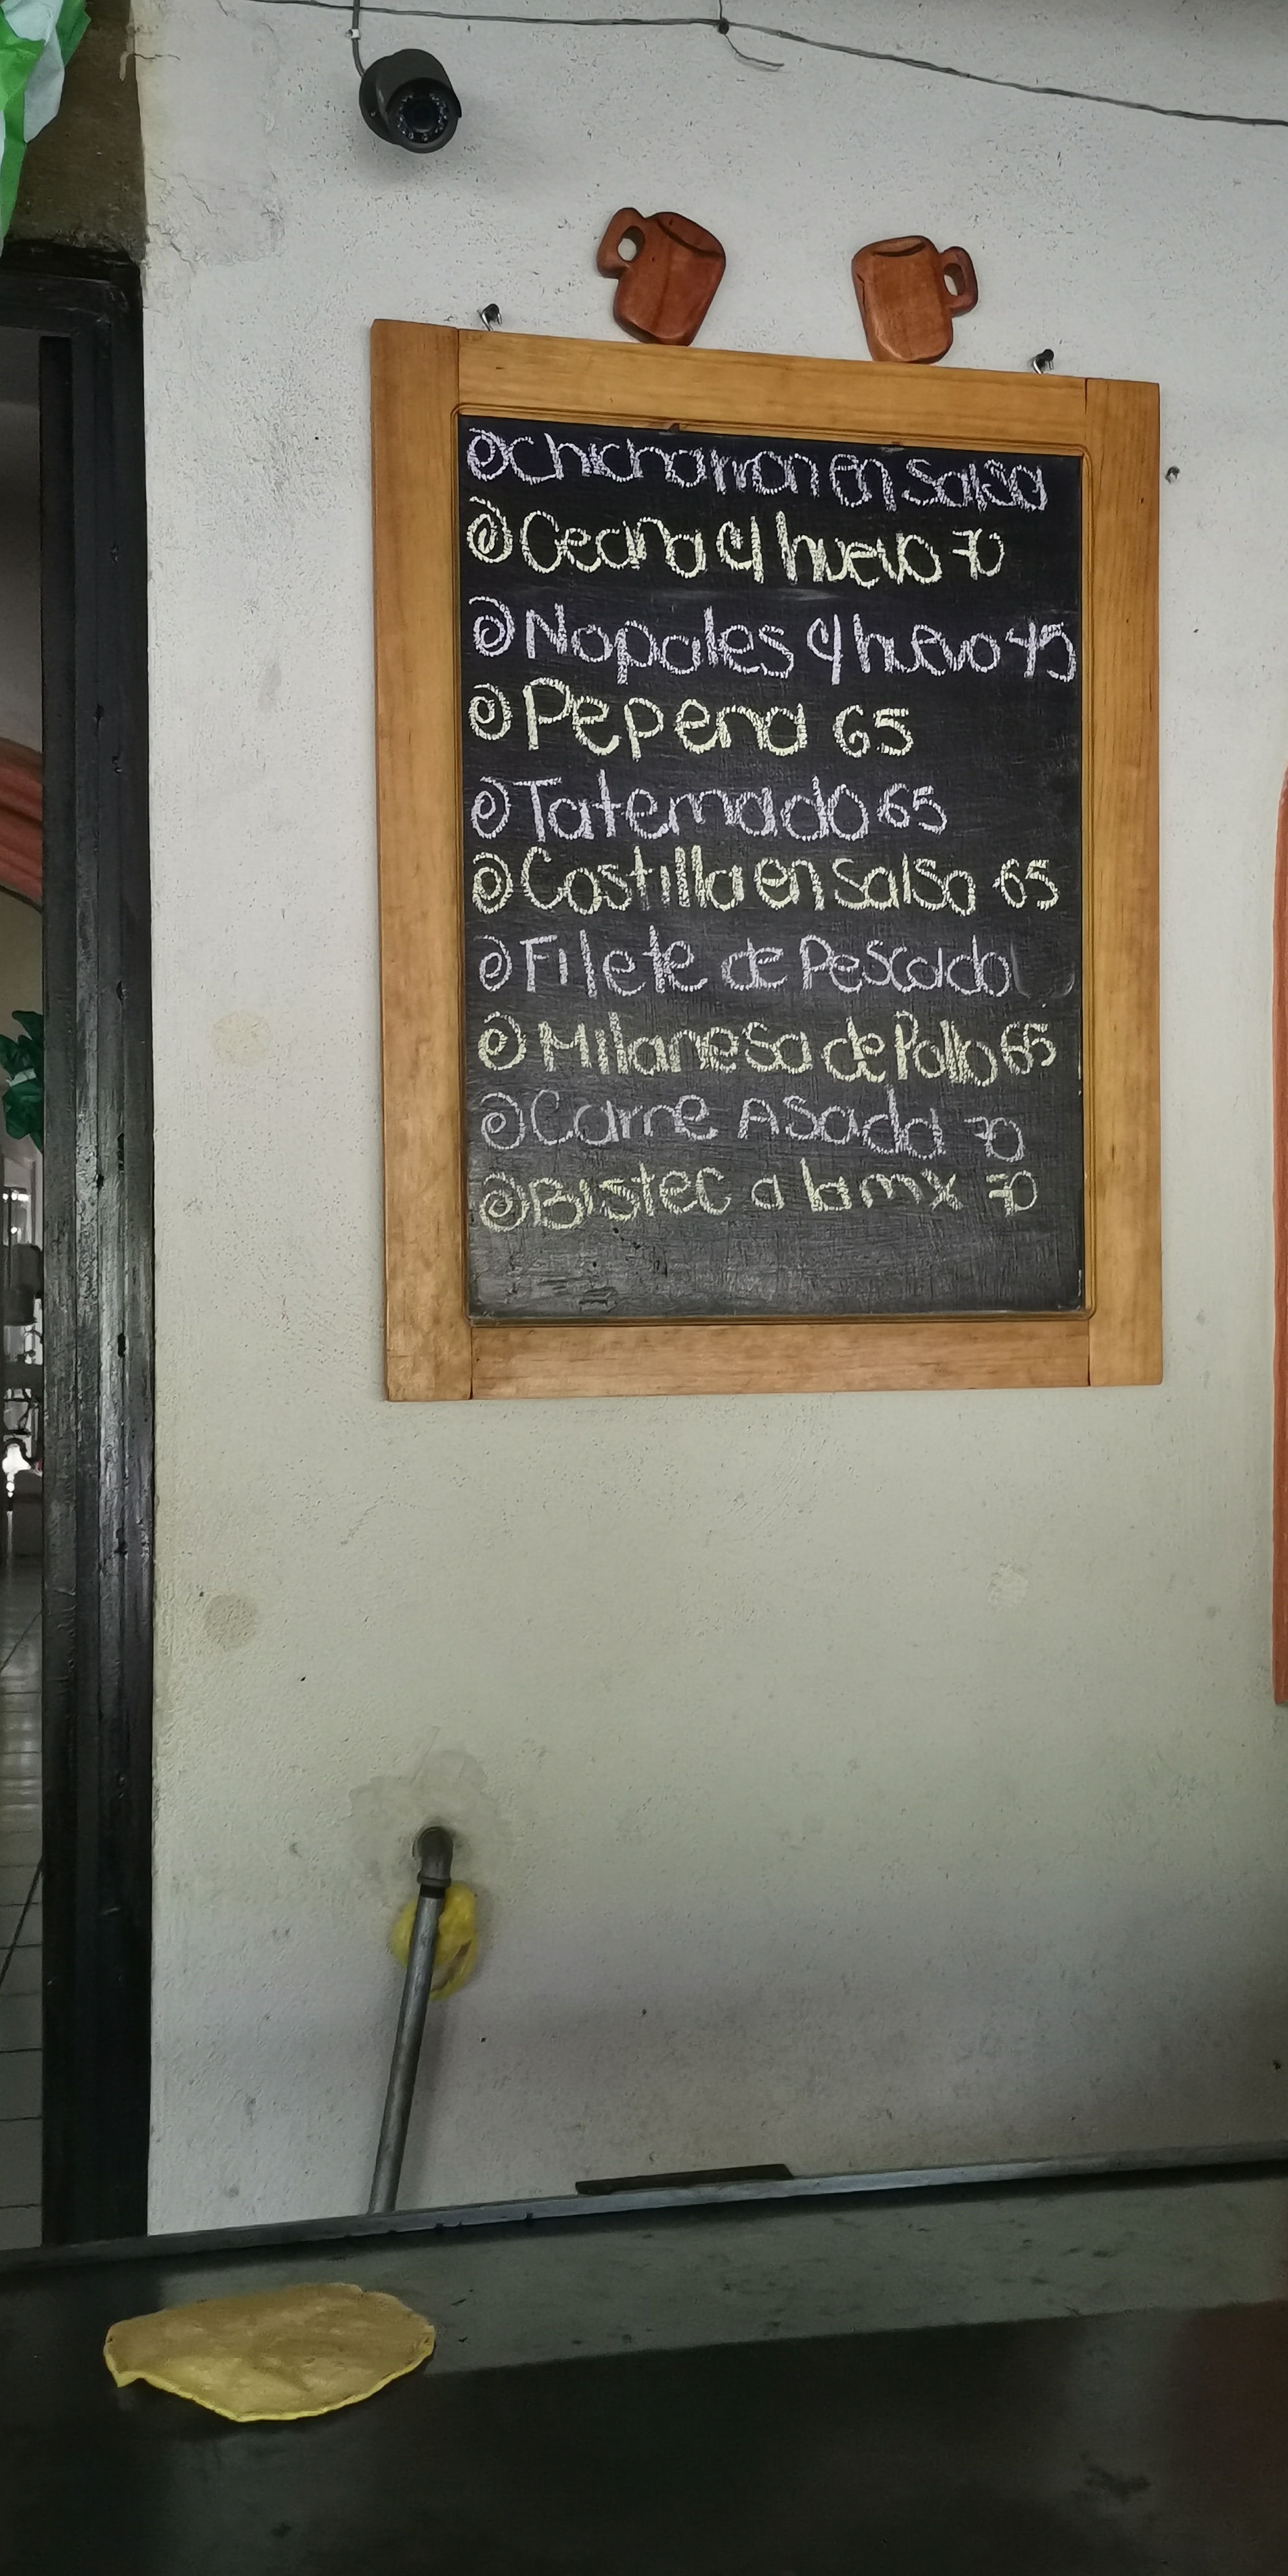 Chicharron en salsa
Cecina c/ huevo 70
Nopales c/ huevo 45
Pepena 65
Tatemado 65
Costilla en salsa 65
Filete de Pescado
Milanesa de Pollo 65
Carne Asada 70
Bistec a la mx 70